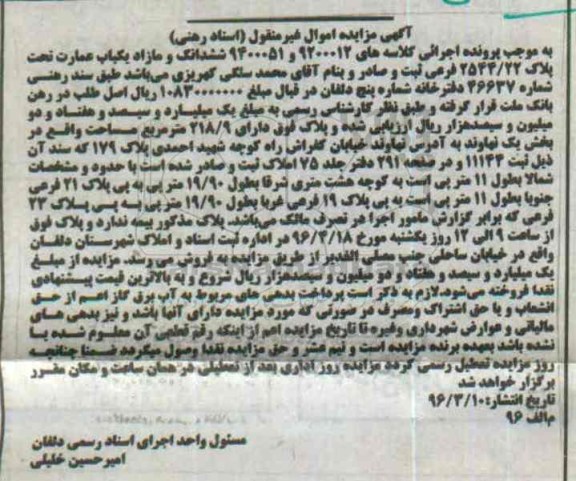 آگهی مزایده اموال غیرمنقول (اسناد رهنی)
به موجب پرونده اجرائی کلاسه های ۹۲۰۰۰۱۲ و ۹۴۰۰۰۵۱ ششدانگ و مازاد یکباب عمارت تحت
پلاک ۲۵۴۴/۲۲ فرعی ثبت و صادر و بنام آقای محمد سلگی کهریزی می‌باشد طبق سند رهنی
شماره ۴۶۶۳۷ دفترخانه شماره پنج دلفان در قبال مبلغ ۱۰۸۳۰۰۰۰۰۰ ریال اصل طلب در رهن
بانک ملت قرار گرفته و طبق نظر کارشناس رسمی به مبلغ یک میلیارد و سیصد و هفتاد و دو
میلیون و سیصدهزار ریال ارزیابی شده و پلاک فوق دارای ۲۱۸/۹ مترمربع مساحت واقع در
بخش یک نهاوند به آدرس نهاوند خیابان کفراش راه کوچه شهید احمدی پلاک ۱۷۹ که سند آن
ذیل ثبت ۱۱۱۴۴ و در صفحه ۲۹۱ دفتر جلد ۷۵ املاک ثبت و صادر شده است با حدود و مشخصات
شمالا بطول ۱۱ متر پی است به کوچه هشت متری شرقا بطول ۱۹/۹۰ متر پی به پی پلاک ۲۱ فرعی
جنوبا بطول ۱۱ متر پی است به پی پلاک ۱۹ فرعی غربا بطول ۱۹/۹۰ متر پی به پی پلاک ۲۳
فرعی که برابر گزارش مامور اجرا در تصرف مالک می‌باشد. پلاک مذکور بیمه ندارد و پلاک فوق
از ساعت ۹ الی ۱۲ روز یکشنبه مورخ ۹۶/۴/۱۸ در اداره ثبت اسناد و املاک شهرستان دلفان
واقع در خیابان ساحلی جنب مصلی الغدیر از طریق مزایده به فروش می رسد. مزایده از مبلغ
یک میلیارد و سیصد و هفتاد و دو میلیون و سیصدهزار ریال شروع و به بالاترین قیمت پیشنهادی
نقدا فروخته می‌شود، لازم به ذکر است پرداخت بدهی های مربوط به آب برق گاز اعم از حق
انشعاب و یا حق اشتراک ومصرف در صورتی که مورد مزایده دارای آنها باشد و نیز بدهی های
مالیاتی و عوارض شهرداری وغیره تا تاریخ مزایده اعم از اینکه رقم قطعی آن معلوم شده یا
نشده باشد بعهده برنده مزایده است و نیم عشر و حق مزایده نقدا وصول میگردد ضمنا چنانچه
روز مزایده تعطیل رسمی گردد مزایده روز اداری بعد از تعطیلی در همان ساعت و مکان مقرر
برگزار خواهد شد
تاریخ انتشار: ۹۶/۳/۱۰
م/الف ۹۶
مسئول واحد اجرای اسناد رسمی دلفان
امیرحسین خلیلی